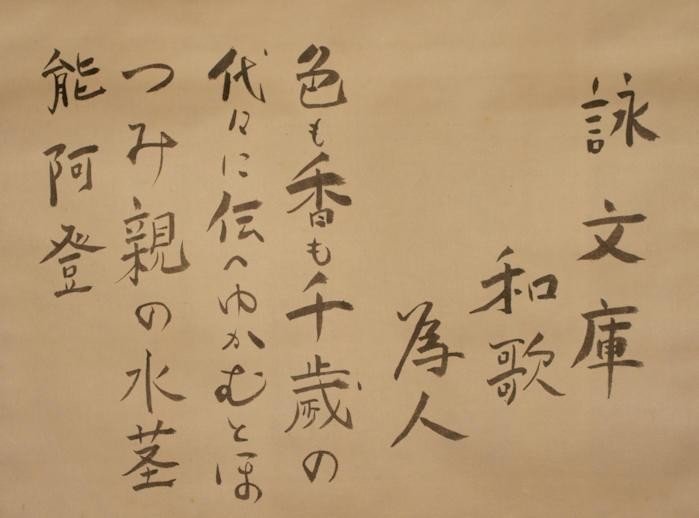 詠文庫
和歌
為人
色も香も千歳の
代々に伝へゆかむとほ
つみ親の水茎
能阿登